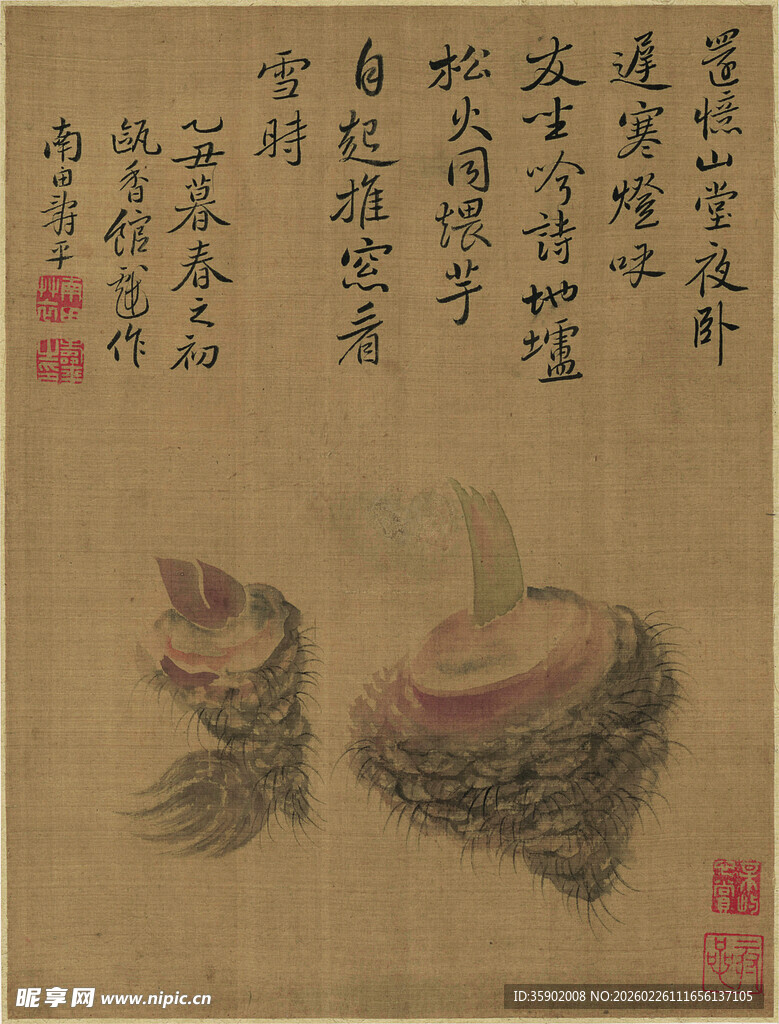 還憶山堂夜卧
遲寒燈味
友坐吟詩地壚
松火同煨芋
自起推窓看
雪時
乙丑暮春之初
甌香館戲作
南田壽平
昵享网 www.nipic.cn
ID:35902008 NO:20260226111656137105